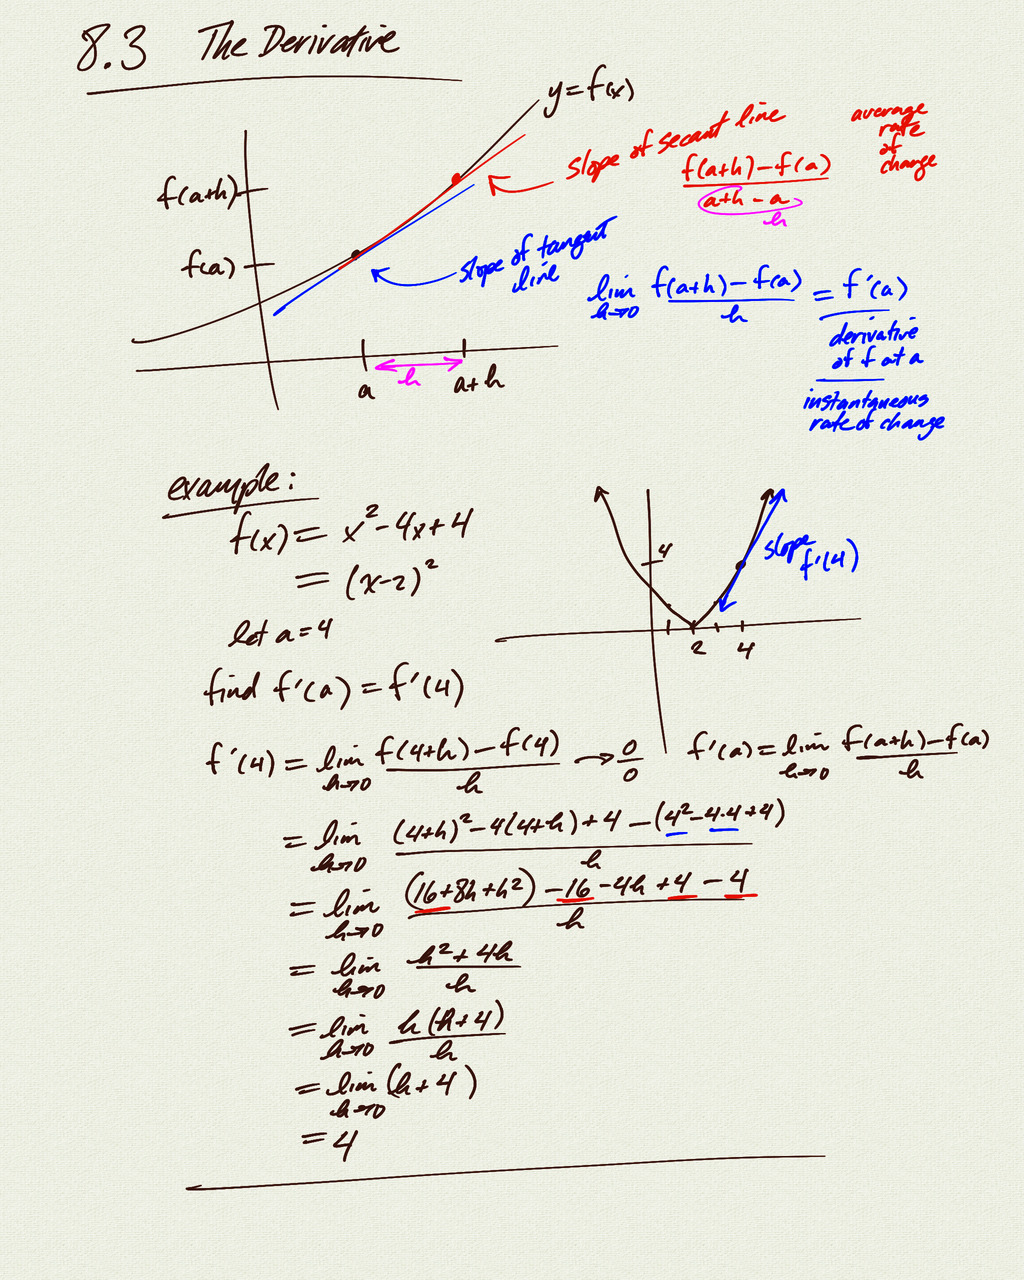 8.3 The Derivative
y = f(x)
f(a+h)
f(a)
a
h
a+h
slope of secant line
f(a+h) - f(a)
a+h - a
h
average
rate
of
change
slope of tangent
line
lim f(a+h) - f(a) = f'(a)
h→0 h
derivative
of f at a
instantaneous
rate of change
example:
f(x) = x² - 4x + 4
= (x-2)²
let a = 4
find f'(a) = f'(4)
4
2
4
slope
f'(4)
f'(4) = lim f(4+h) - f(4) → 0
h→0 h 0
f'(a) = lim f(a+h) - f(a)
h→0 h
= lim (4+h)² - 4(4+h) + 4 - (4² - 4·4 + 4)
h→0 h
= lim (16 + 8h + h²) - 16 - 4h + 4 - 4
h→0 h
= lim h² + 4h
h→0 h
= lim h(h+4)
h→0 h
= lim (h+4)
h→0
= 4